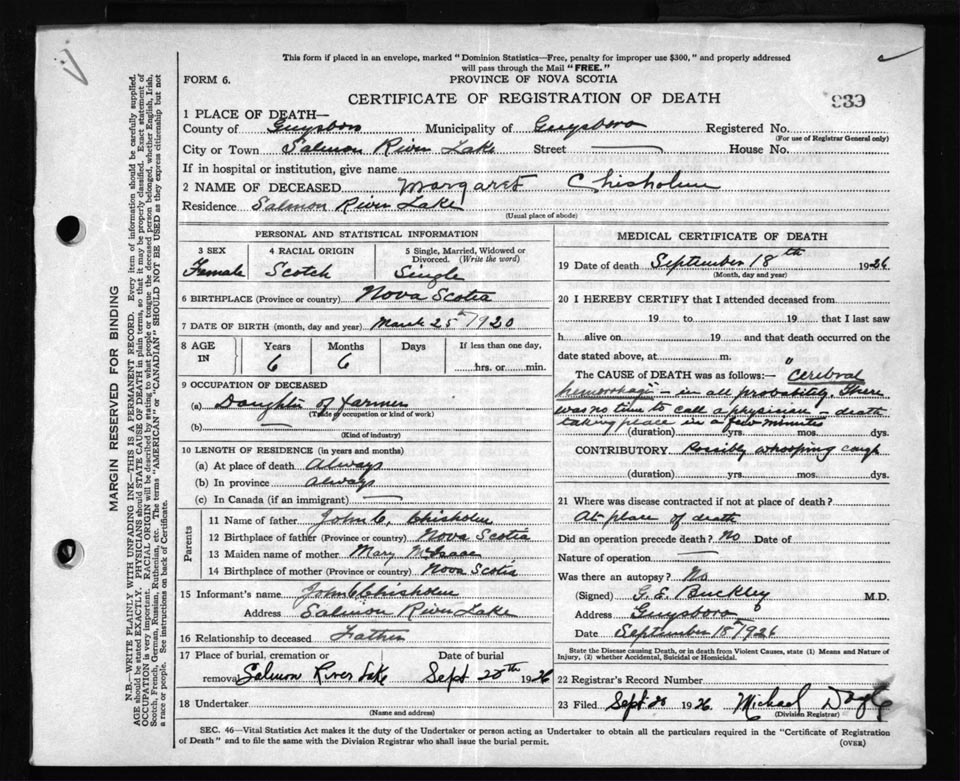 This form if placed in an envelope, marked "Dominion Statistics—Free, penalty for improper use $300," and properly addressed
will pass through the Mail "FREE."
FORM 6.
PROVINCE OF NOVA SCOTIA
CERTIFICATE OF REGISTRATION OF DEATH
939
1 PLACE OF DEATH—
County of Guysboro Municipality of Guysboro Registered No.
(For use of Registrar General only)
City or Town Salmon River Lake Street — House No.
If in hospital or institution, give name
2 NAME OF DECEASED Margaret Chisholm
Residence Salmon River Lake
(Usual place of abode)
PERSONAL AND STATISTICAL INFORMATION
3 SEX 4 RACIAL ORIGIN 5 Single, Married, Widowed or
Divorced. (Write the word)
Female Scotch Single
6 BIRTHPLACE (Province or country) Nova Scotia
7 DATE OF BIRTH (month, day and year) March 25th 1920
8 AGE IN Years Months Days If less than one day,
6 6 hrs. or min.
9 OCCUPATION OF DECEASED
(a) Daughter of farmer
(Trade or occupation or kind of work)
(b) —
(Kind of industry)
10 LENGTH OF RESIDENCE (in years and months)
(a) At place of death Always
(b) In province Always
(c) In Canada (if an immigrant) —
Parents
11 Name of father John C. Chisholm
12 Birthplace of father (Province or country) Nova Scotia
13 Maiden name of mother Mary McIsaac
14 Birthplace of mother (Province or country) Nova Scotia
15 Informant's name John C Chisholm
Address Salmon River Lake
16 Relationship to deceased Father
17 Place of burial, cremation or Date of burial
removal Salmon River Lake Sept 20th 1926
18 Undertaker
(Name and address)
MEDICAL CERTIFICATE OF DEATH
19 Date of death September 18th 1926
(Month, day and year)
20 I HEREBY CERTIFY that I attended deceased from
19 to 19 that I last saw
h alive on 19 and that death occurred on the
date stated above, at m.
The CAUSE of DEATH was as follows:— "Cerebral
hemorrhage" — in all probability. There
was no time to call a physician — death
taking place in a few minutes
(duration) yrs. mos. dys.
CONTRIBUTORY Possibly whooping cough
(duration) yrs. mos. dys.
21 Where was disease contracted if not at place of death?
At place of death
Did an operation precede death? No Date of
Nature of operation —
Was there an autopsy? No
(Signed) G. E. Buckley M.D.
Address Guysboro
Date September 18th 1926
State the Disease causing Death, or in death from Violent Causes, state (1) Means and Nature of
Injury, (2) whether Accidental, Suicidal or Homicidal.
22 Registrar's Record Number
23 Filed Sept 20 1926 Michael Doyle
(Division Registrar)
SEC. 46—Vital Statistics Act makes it the duty of the Undertaker or person acting as Undertaker to obtain all the particulars required in the "Certificate of Registration
of Death" and to file the same with the Division Registrar who shall issue the burial permit.
(OVER)
MARGIN RESERVED FOR BINDING
N.B.—WRITE PLAINLY WITH UNFADING INK—THIS IS A PERMANENT RECORD. Every item of information should be carefully supplied.
AGE should be stated EXACTLY. PHYSICIANS should STATE CAUSE OF DEATH in plain terms, so that it may be properly classified. Exact statement of
OCCUPATION is very important. RACIAL ORIGIN will be described by stating to what people or tongue the deceased person belonged, whether English, Irish,
Scotch, French, German, Russian, Ruthenian, etc. The terms "AMERICAN" or "CANADIAN" SHOULD NOT BE USED as they express citizenship but not
a race or people. See instructions on back of Certificate.